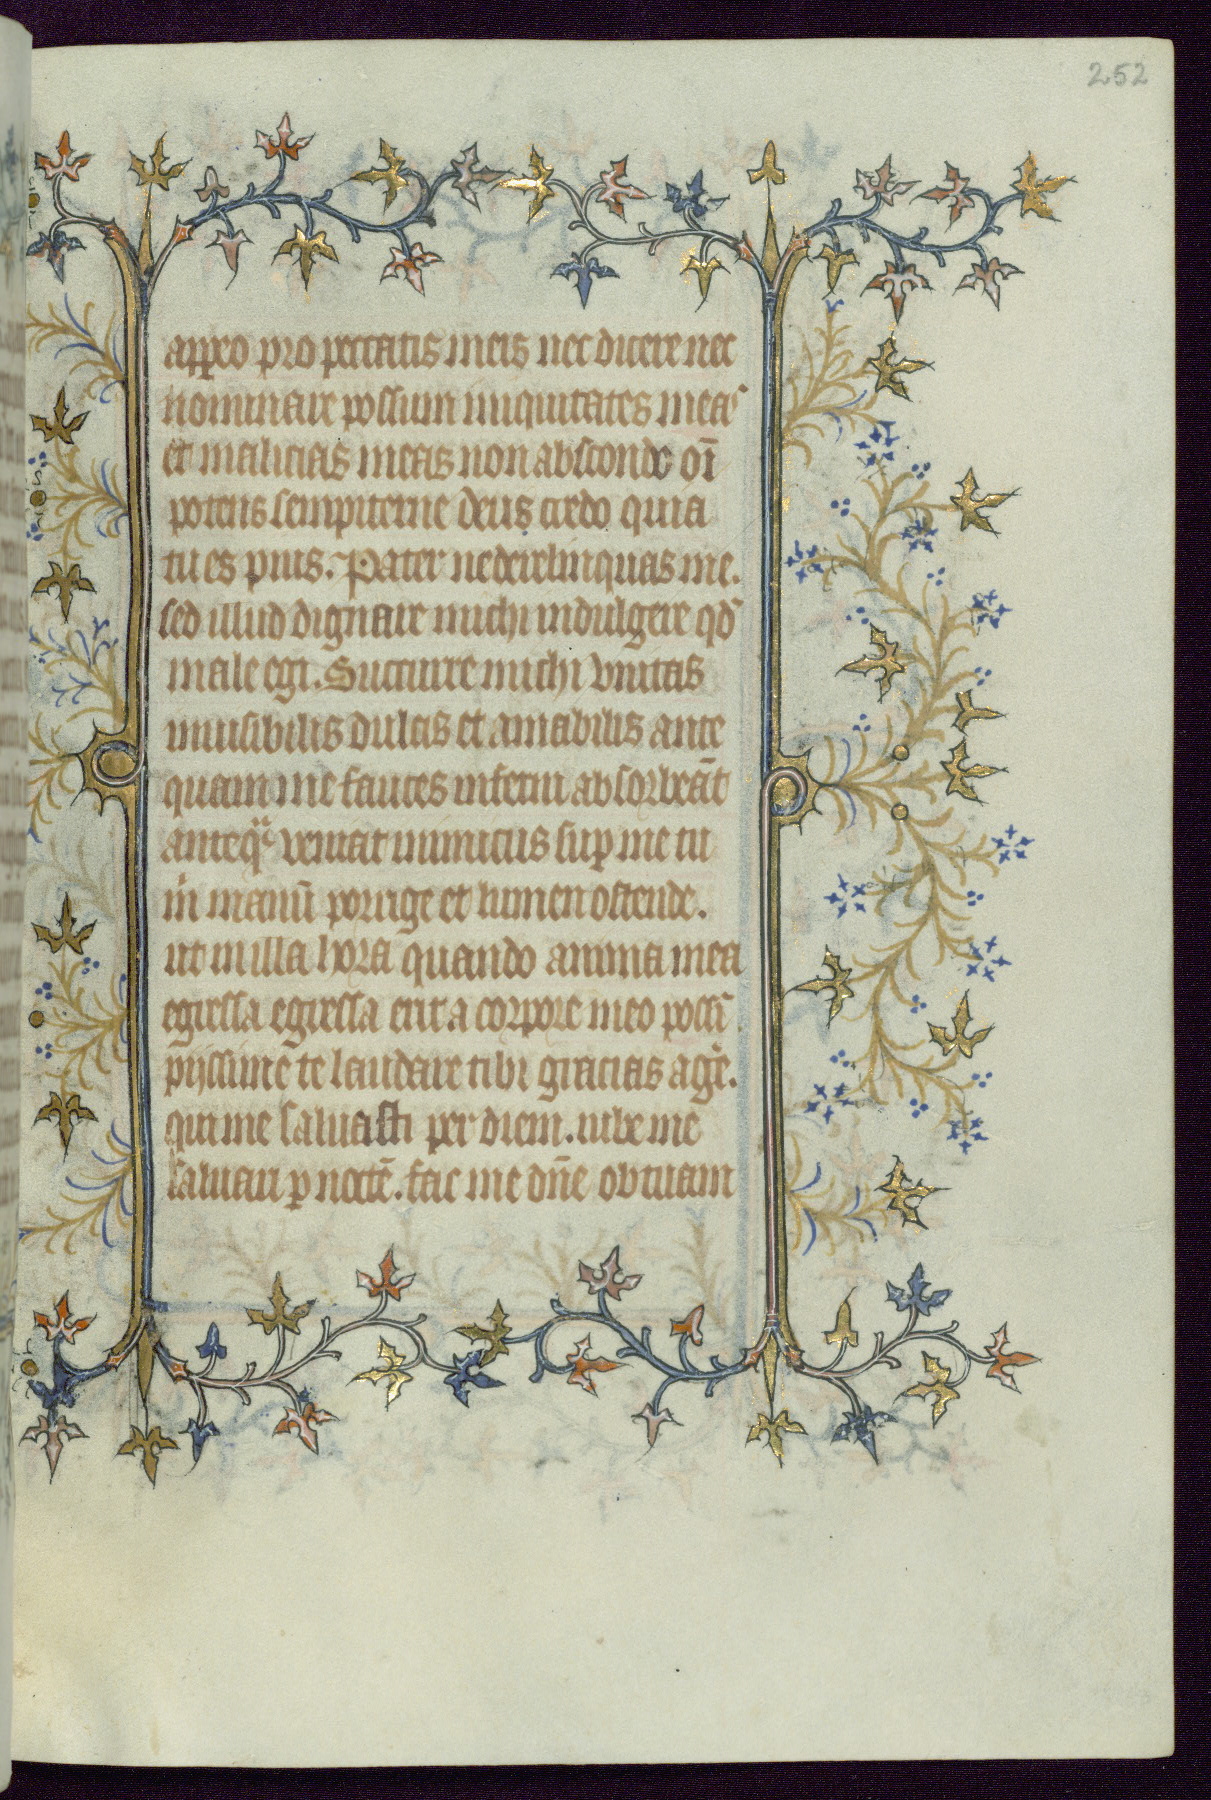 252
appeo pro peccatis meis nec dicere nec
nominare possum iniquitates meas
et malicias meas non abscondo oī
potens sempiterne deus credo quia
tu es pius. Pater ne derelinquas me.
sed illud dignare michi indulgere qd̄
male egi. Succurre michi vnitas
inuisibilis dulcis et amabilis ante
quam me fauces inferni absorbeāt
anteqͣ veniat inimicus sup̱ me tu
in manū porrige et lumen ostende.
ut in illa hora quando anima mea
egressa egressa erit a corpore meo possī
pijssime te laudare tibi gracias agēe.
qui me saluasti per diem. iube me
saluari ꝑ noctē. fac me dn̄e ob tuam